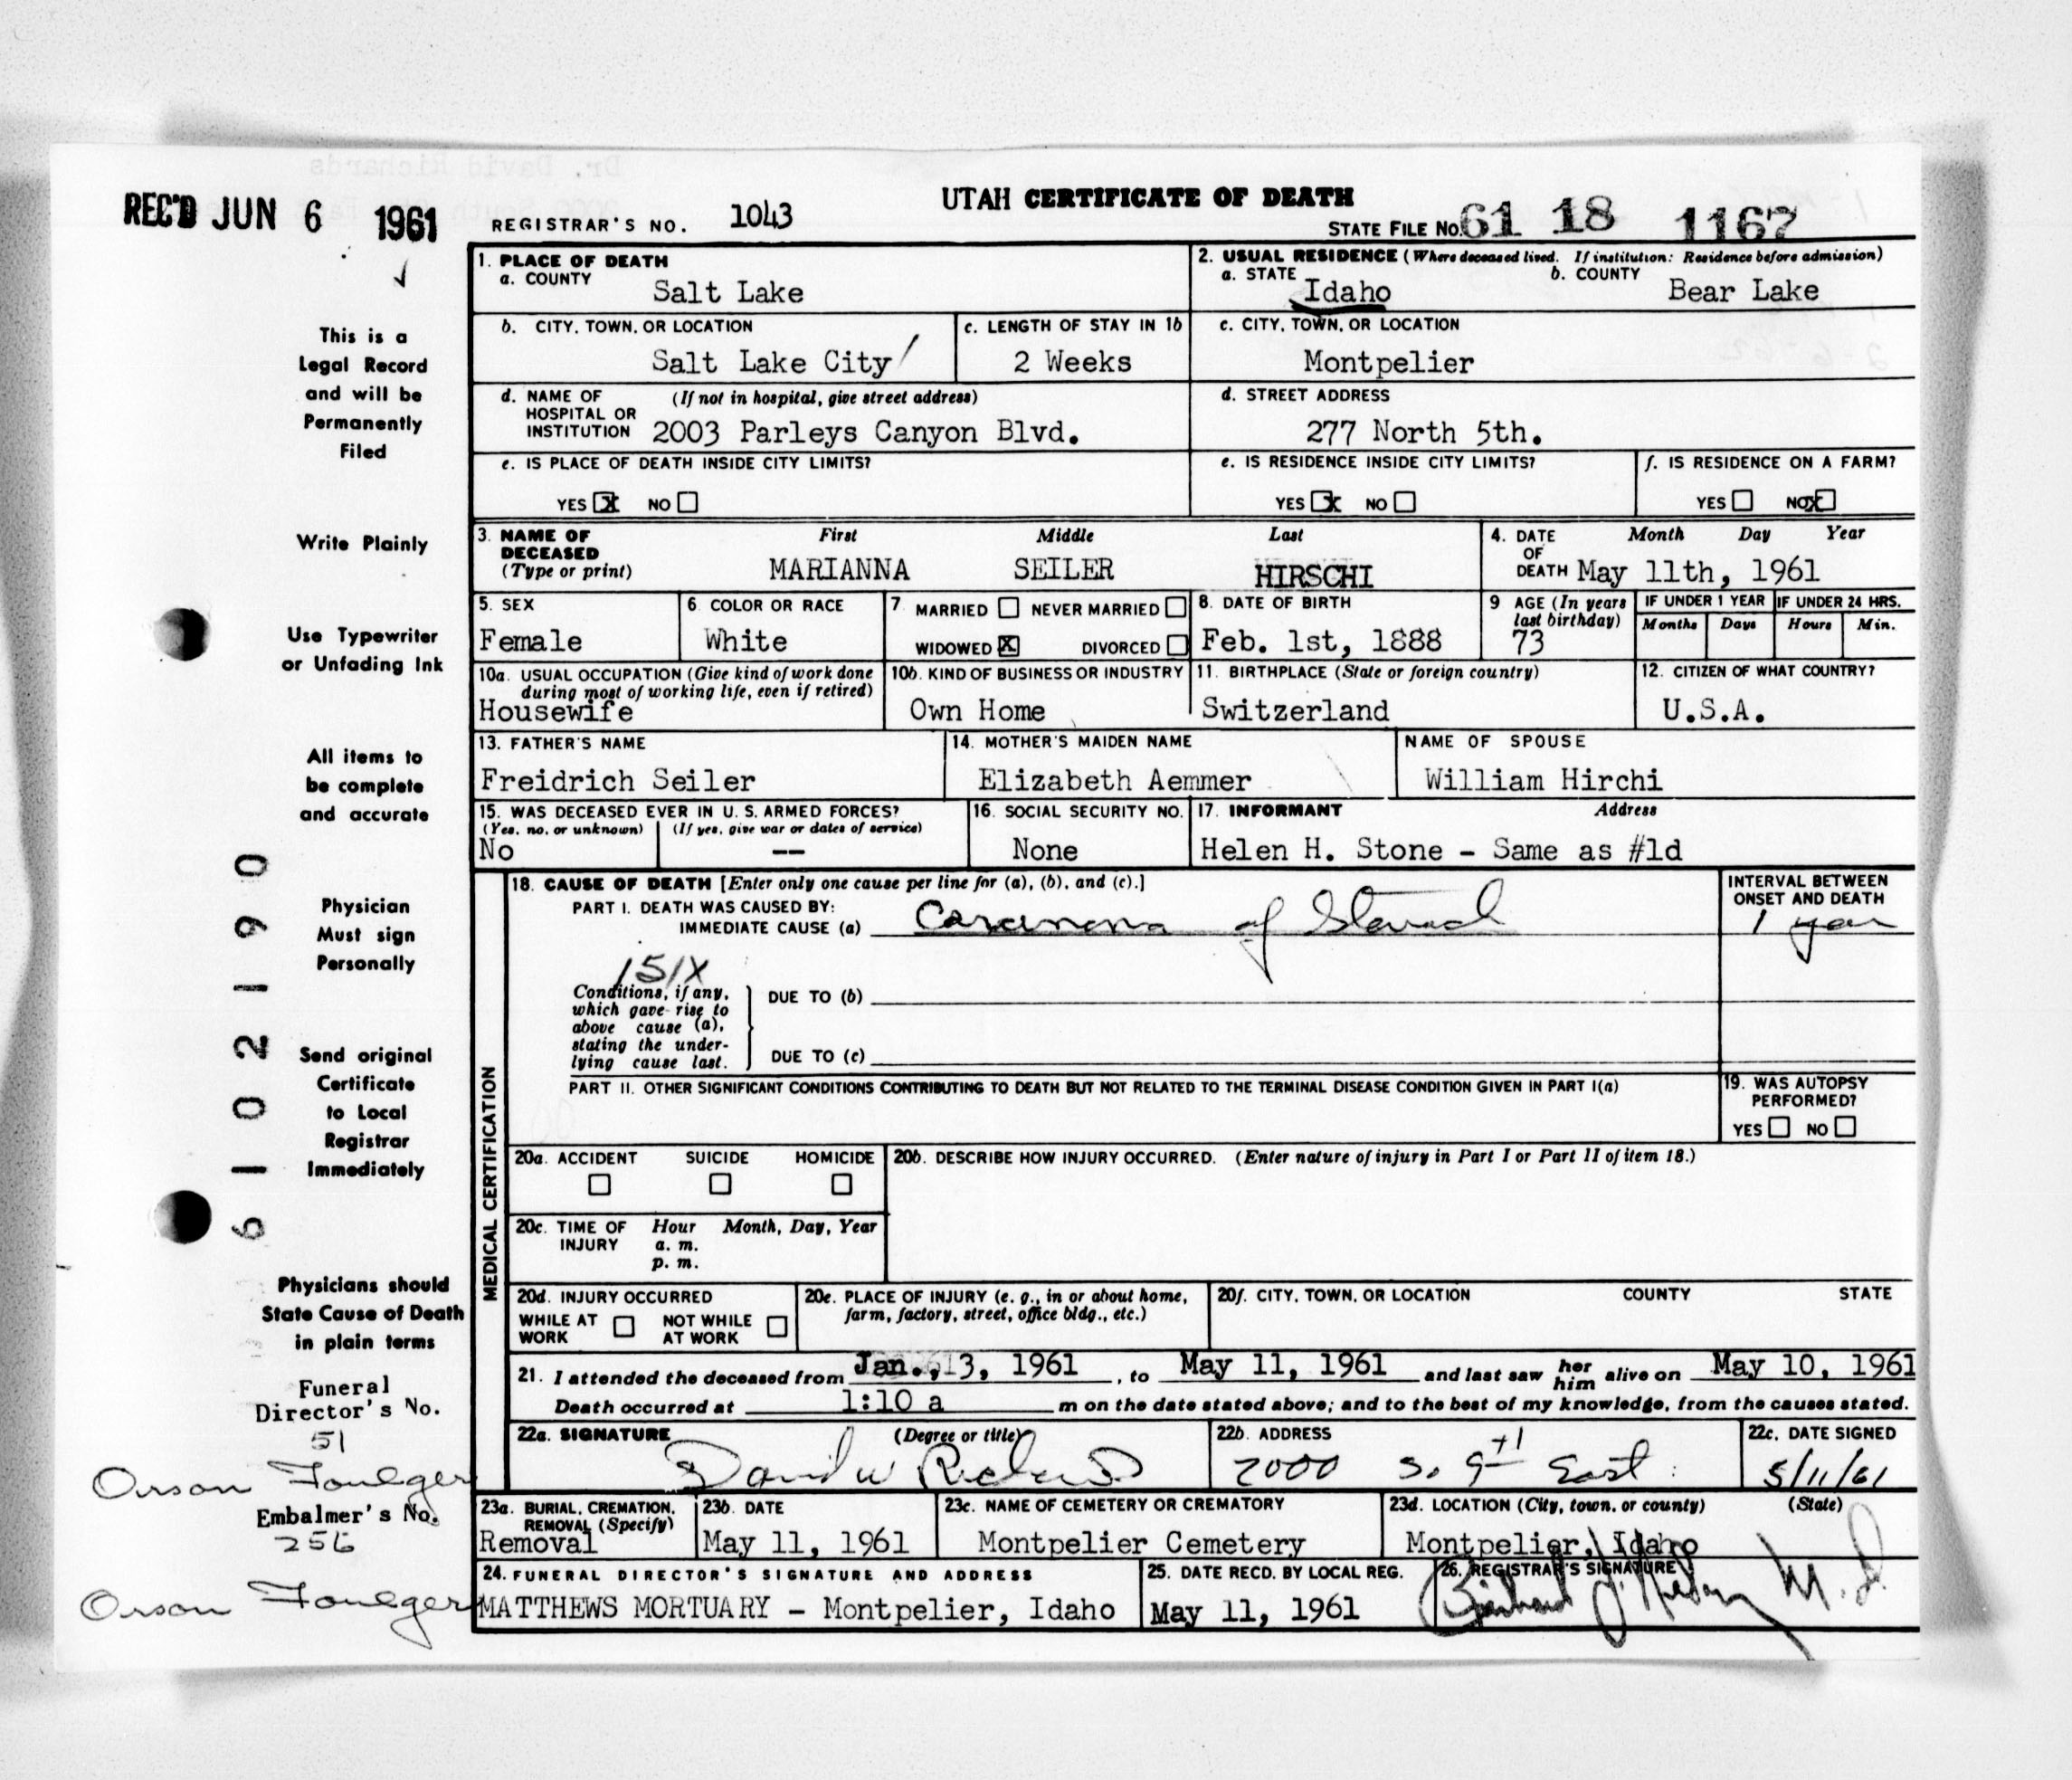 REC'D JUN 6 1961
UTAH CERTIFICATE OF DEATH
REGISTRAR'S NO. 1043
STATE FILE NO. 61 18 1167
1. PLACE OF DEATH
a. COUNTY
Salt Lake
2. USUAL RESIDENCE (Where deceased lived. If institution: Residence before admission)
a. STATE b. COUNTY
Idaho Bear Lake
b. CITY, TOWN, OR LOCATION
Salt Lake City
c. LENGTH OF STAY IN 1b
2 Weeks
c. CITY, TOWN, OR LOCATION
Montpelier
d. NAME OF HOSPITAL OR INSTITUTION (If not in hospital, give street address)
2003 Parleys Canyon Blvd.
d. STREET ADDRESS
277 North 5th.
e. IS PLACE OF DEATH INSIDE CITY LIMITS?
YES X NO
e. IS RESIDENCE INSIDE CITY LIMITS?
YES X NO
f. IS RESIDENCE ON A FARM?
YES NO X
3. NAME OF DECEASED (Type or print)
First Middle Last
MARIANNA SEILER HIRSCHI
4. DATE OF DEATH Month Day Year
May 11th, 1961
5. SEX
Female
6. COLOR OR RACE
White
7. MARRIED NEVER MARRIED
WIDOWED X DIVORCED
8. DATE OF BIRTH
Feb. 1st, 1888
9 AGE (In years last birthday)
73
IF UNDER 1 YEAR IF UNDER 24 HRS.
Months Days Hours Min.
10a. USUAL OCCUPATION (Give kind of work done during most of working life, even if retired)
Housewife
10b. KIND OF BUSINESS OR INDUSTRY
Own Home
11. BIRTHPLACE (State or foreign country)
Switzerland
12. CITIZEN OF WHAT COUNTRY?
U.S.A.
13. FATHER'S NAME
Freidrich Seiler
14. MOTHER'S MAIDEN NAME
Elizabeth Aemmer
NAME OF SPOUSE
William Hirchi
15. WAS DECEASED EVER IN U.S. ARMED FORCES?
(Yes, no, or unknown) (If yes, give war or dates of service)
No --
16. SOCIAL SECURITY NO.
None
17. INFORMANT Address
Helen H. Stone - Same as #1d
MEDICAL CERTIFICATION
18. CAUSE OF DEATH [Enter only one cause per line for (a), (b), and (c).]
PART I. DEATH WAS CAUSED BY:
IMMEDIATE CAUSE (a) Carcinoma of Stomach
INTERVAL BETWEEN ONSET AND DEATH
1 year
151X
Conditions, if any, which gave rise to above cause (a), stating the underlying cause last.
DUE TO (b)
DUE TO (c)
PART II. OTHER SIGNIFICANT CONDITIONS CONTRIBUTING TO DEATH BUT NOT RELATED TO THE TERMINAL DISEASE CONDITION GIVEN IN PART I(a)
19. WAS AUTOPSY PERFORMED?
YES NO
20a. ACCIDENT SUICIDE HOMICIDE
20b. DESCRIBE HOW INJURY OCCURRED. (Enter nature of injury in Part I or Part II of item 18.)
20c. TIME OF INJURY Hour Month, Day, Year
a. m.
p. m.
20d. INJURY OCCURRED
WHILE AT WORK NOT WHILE AT WORK
20e. PLACE OF INJURY (e. g., in or about home, farm, factory, street, office bldg., etc.)
20f. CITY, TOWN, OR LOCATION COUNTY STATE
21. I attended the deceased from Jan., 13, 1961, to May 11, 1961 and last saw her him alive on May 10, 1961
Death occurred at 1:10 a m on the date stated above; and to the best of my knowledge, from the causes stated.
22a. SIGNATURE (Degree or title)
David W Richards
22b. ADDRESS
2000 So 9th East
22c. DATE SIGNED
5/11/61
23a. BURIAL, CREMATION, REMOVAL (Specify)
Removal
23b. DATE
May 11, 1961
23c. NAME OF CEMETERY OR CREMATORY
Montpelier Cemetery
23d. LOCATION (City, town, or county) (State)
Montpelier, Idaho
24. FUNERAL DIRECTOR'S SIGNATURE AND ADDRESS
MATTHEWS MORTUARY - Montpelier, Idaho
25. DATE RECD. BY LOCAL REG.
May 11, 1961
26. REGISTRAR'S SIGNATURE
M.D.
This is a
Legal Record
and will be
Permanently
Filed
Write Plainly
Use Typewriter
or Unfading Ink
All items to
be complete
and accurate
Physician
Must sign
Personally
Send original
Certificate
to Local
Registrar
Immediately
Physicians should
State Cause of Death
in plain terms
Funeral
Director's No.
51
Orson Foulger
Embalmer's No.
256
Orson Foulger
6102190